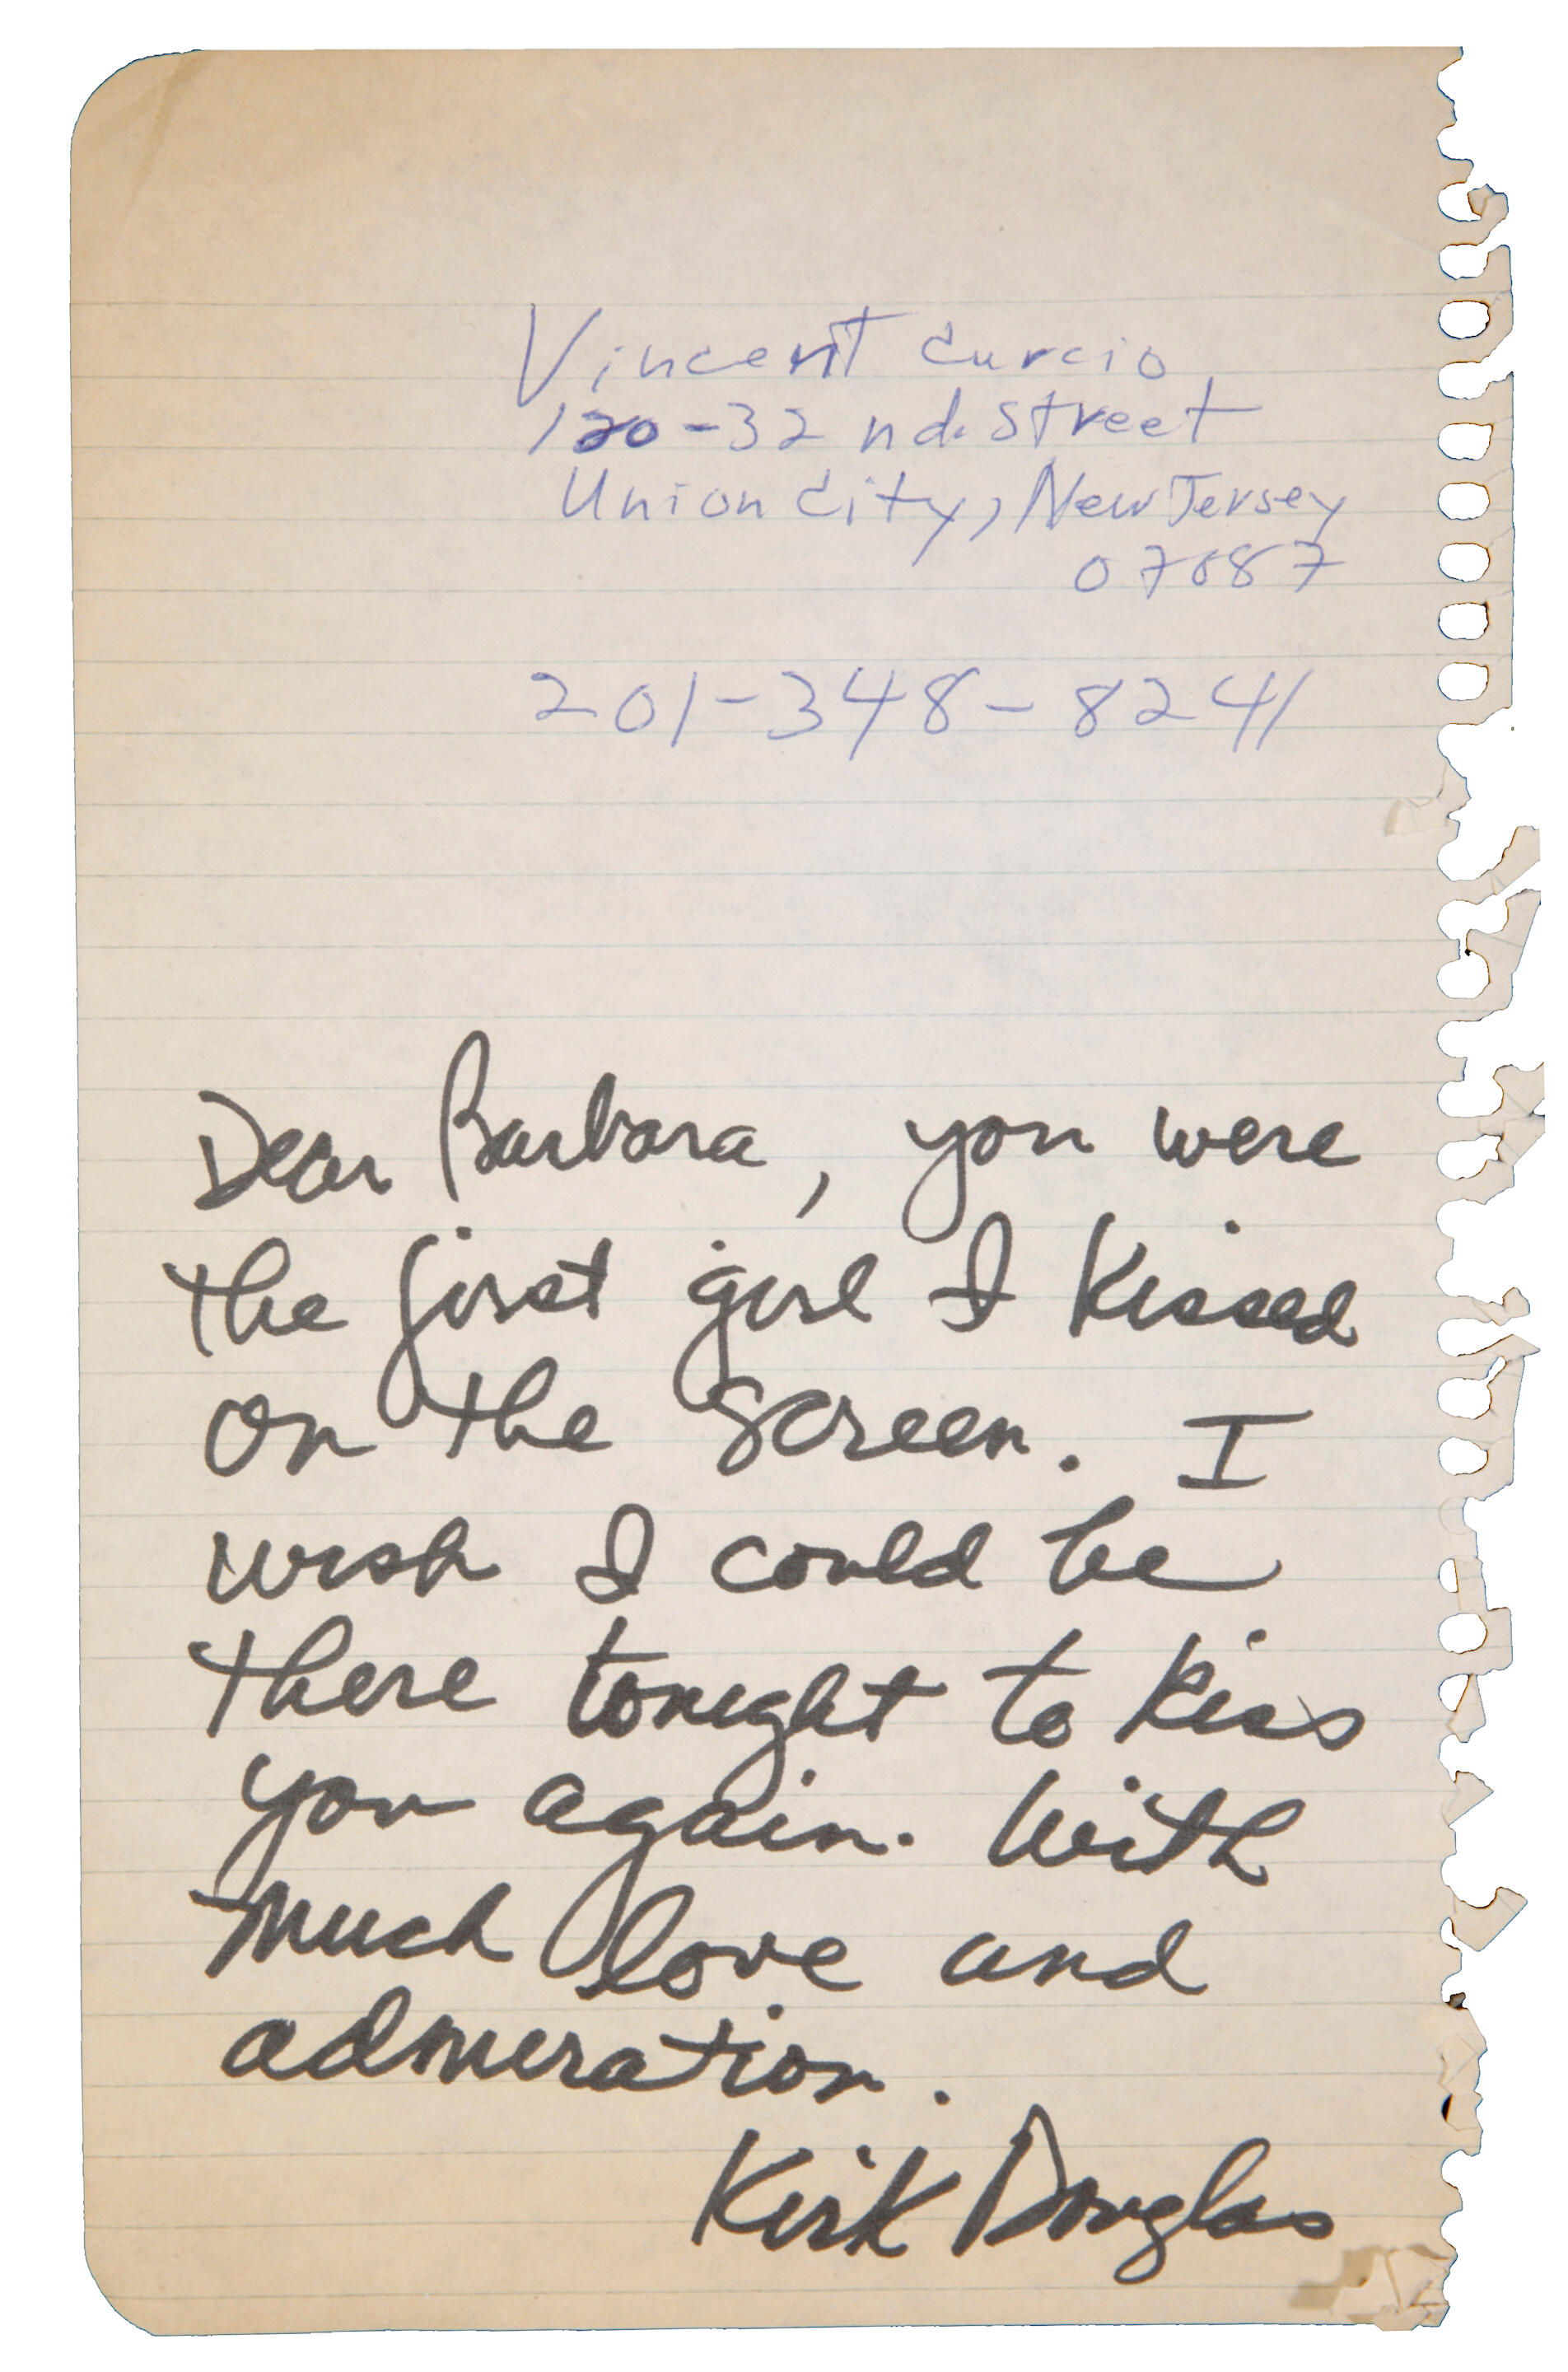 Vincent Curcio
120-32 nd. Street
Union City, New Jersey
07087
201-348-8241
Dear Barbara, you were
the first girl I kissed
on the screen. I
wish I could be
there tonight to kiss
you again. With
much love and
admiration.
Kirk Douglas